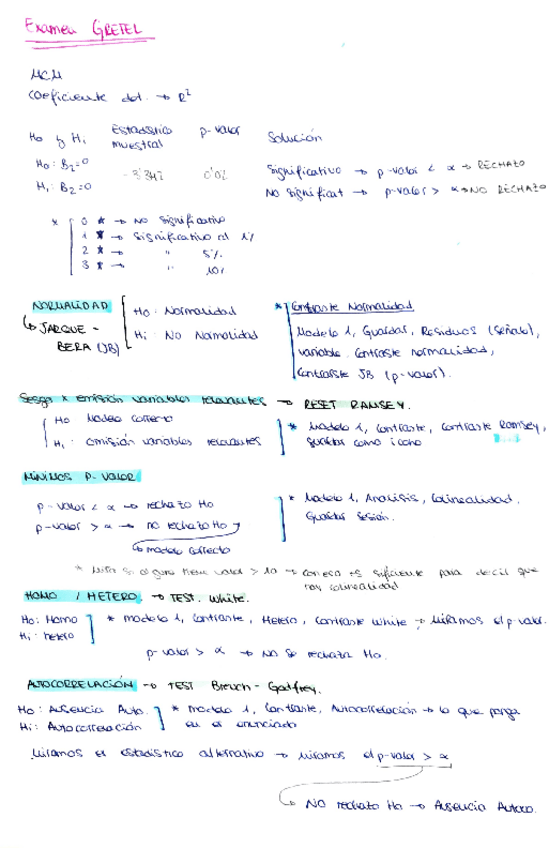 Examen GRETEL
MCM
Coeficiente det. → R²
H₀ y H₁ Estadístico muestral p-valor Solución
H₀: B₂=0 -3'347 0'02 Significativo → p-valor < α → RECHAZO
H₁: B₂=0 No significat → p-valor > α → NO RECHAZO
* 0 * → No significativo
1 * → Significativo al 1%
2 * → " 5%
3 * → " 10%
NORMALIDAD H₀: Normalidad * Contraste Normalidad
↳ JARQUE - BERA (JB) H₁: No Normalidad Modelo 1, Guardar, Residuos (señalo),
variable. Contraste normalidad,
Contraste JB (p-valor).
Sesgo x omisión variables relevantes → RESET RAMSEY.
H₀ Modelo correcto * Modelo 1, Contraste, Contraste Ramsey,
H₁: omisión variables relevantes guardar como icono
MÍNIMOS P. VALOR
p-valor < α → rechazo H₀ * Modelo 1, Analisis, Colinealidad,
p-valor > α → no rechazo H₀ Guardar Sesión.
↳ modelo correcto
* Mira si alguno tiene valor > 10 → con eso es suficiente para decir que
hay colinealidad
HOMO / HETERO. → TEST. White.
H₀: Homo * modelo 1, Contraste, Hetero, Contraste White → Miramos el p-valor.
H₁: hetero
p-valor > α → No se rechaza H₀.
AUTOCORRELACIÓN → TEST Breuch-Godfrey.
H₀: Ausencia Auto. * modelo 1, Contraste, Autocorrelación → lo que ponga
H₁: Autocorrelación en el enunciado
Miramos el estadístico alternativo → miramos el p-valor > α
↳ NO rechazo H₀ → Ausencia Autoco.